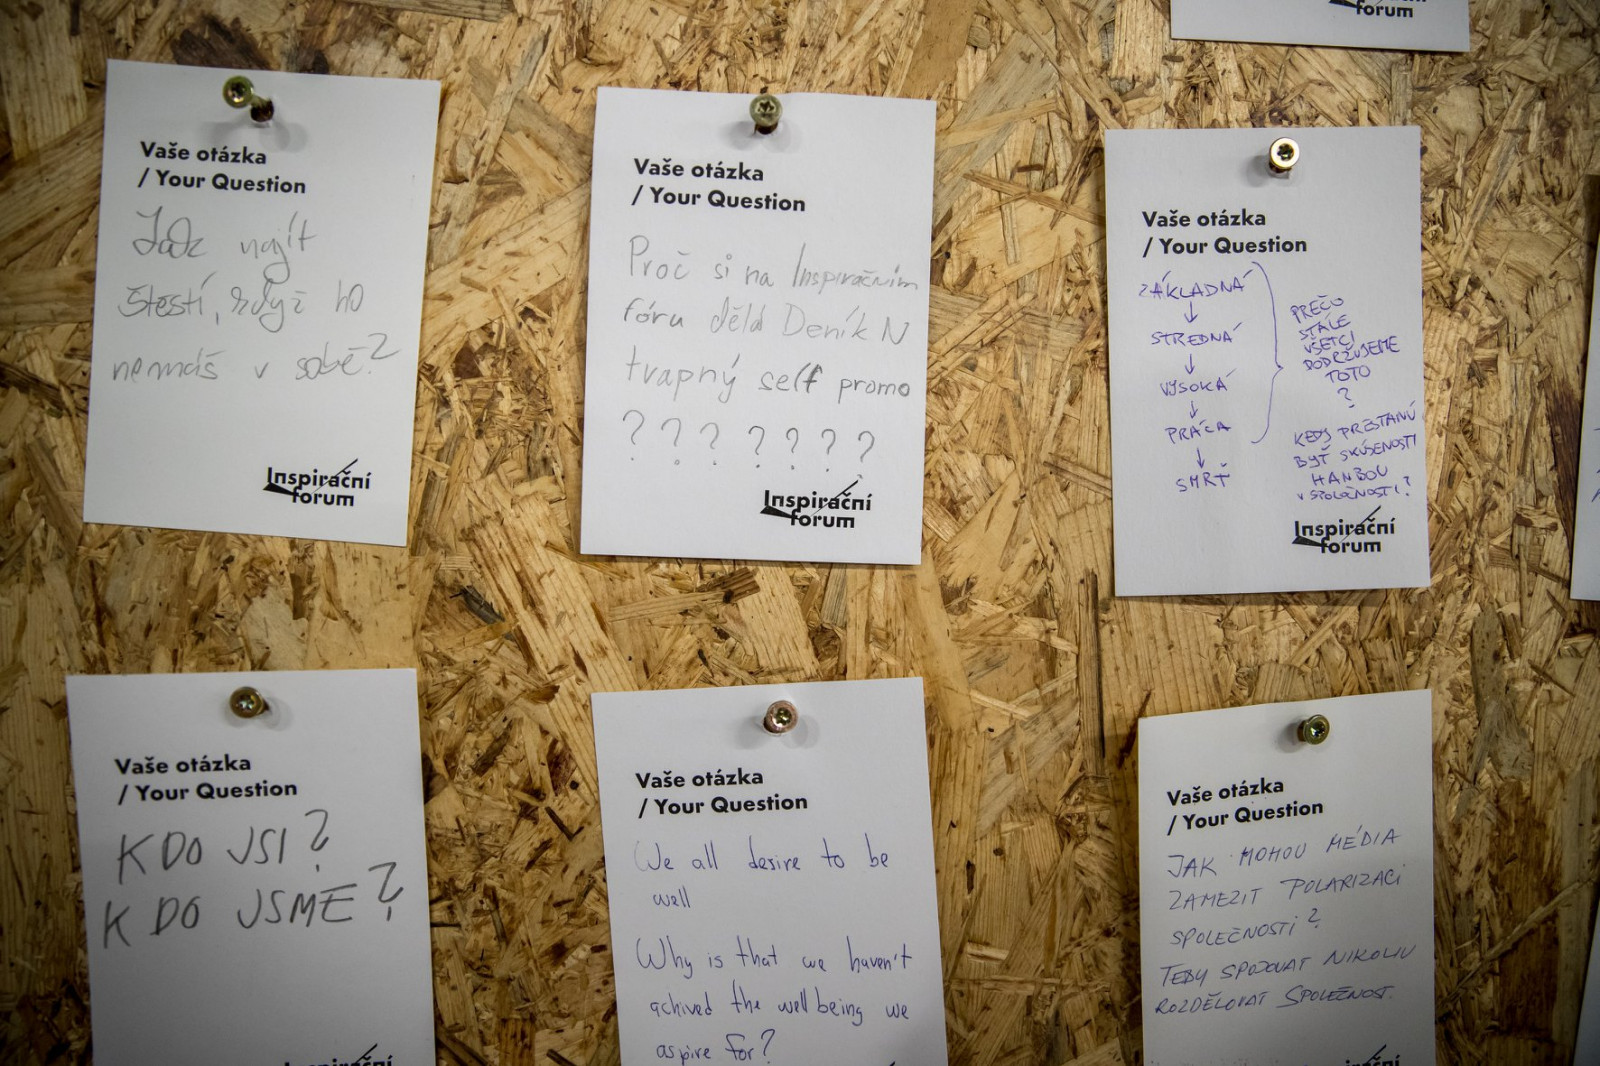 forum
Vaše otázka
/ Your Question
Jak najít
štestí, když ho
nemáš v sobě?
Inspirační
forum
Vaše otázka
/ Your Question
Proč si na Inspiračním
fóru dělá Deník N
trapný self promo
? ? ? ? ? ? ?
Inspirační
forum
Vaše otázka
/ Your Question
ZÁKLADNÁ
↓
STREDNÁ
↓
VYSOKÁ
↓
PRÁCA
↓
SMRŤ
PREČO
STÁLE
VŠETCI
DODRŽUJEME
TOTO
?
KEDY PRESTANÚ
BYŤ SKÚSENOSTI
HANBOU
V SPOLOČNOSTI?
Inspirační
forum
Vaše otázka
/ Your Question
KDO JSI?
KDO JSME?
Inspirační
Vaše otázka
/ Your Question
We all desire to be
well
Why is that we haven't
achived the wellbeing we
aspire for?
Vaše otázka
/ Your Question
JAK MOHOU MÉDIA
ZAMEZIT POLARIZACI
SPOLEČNOSTI?
TEDY SPOJOVAT NIKOLIV
ROZDĚLOVAT SPOLEČNOST.
Inspirační